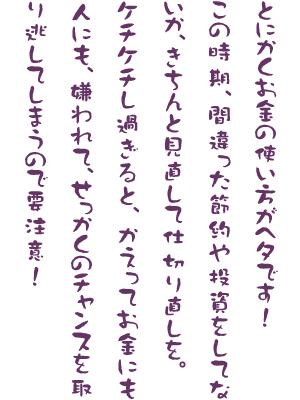 とにかくお金の使い方がヘタです！
この時期、間違った節約や投資をしてな
いか、きちんと見直して仕切り直しを。
ケチケチし過ぎると、かえってお金にも
人にも、嫌われて、せっかくのチャンスを取
り逃してしまうので要注意！